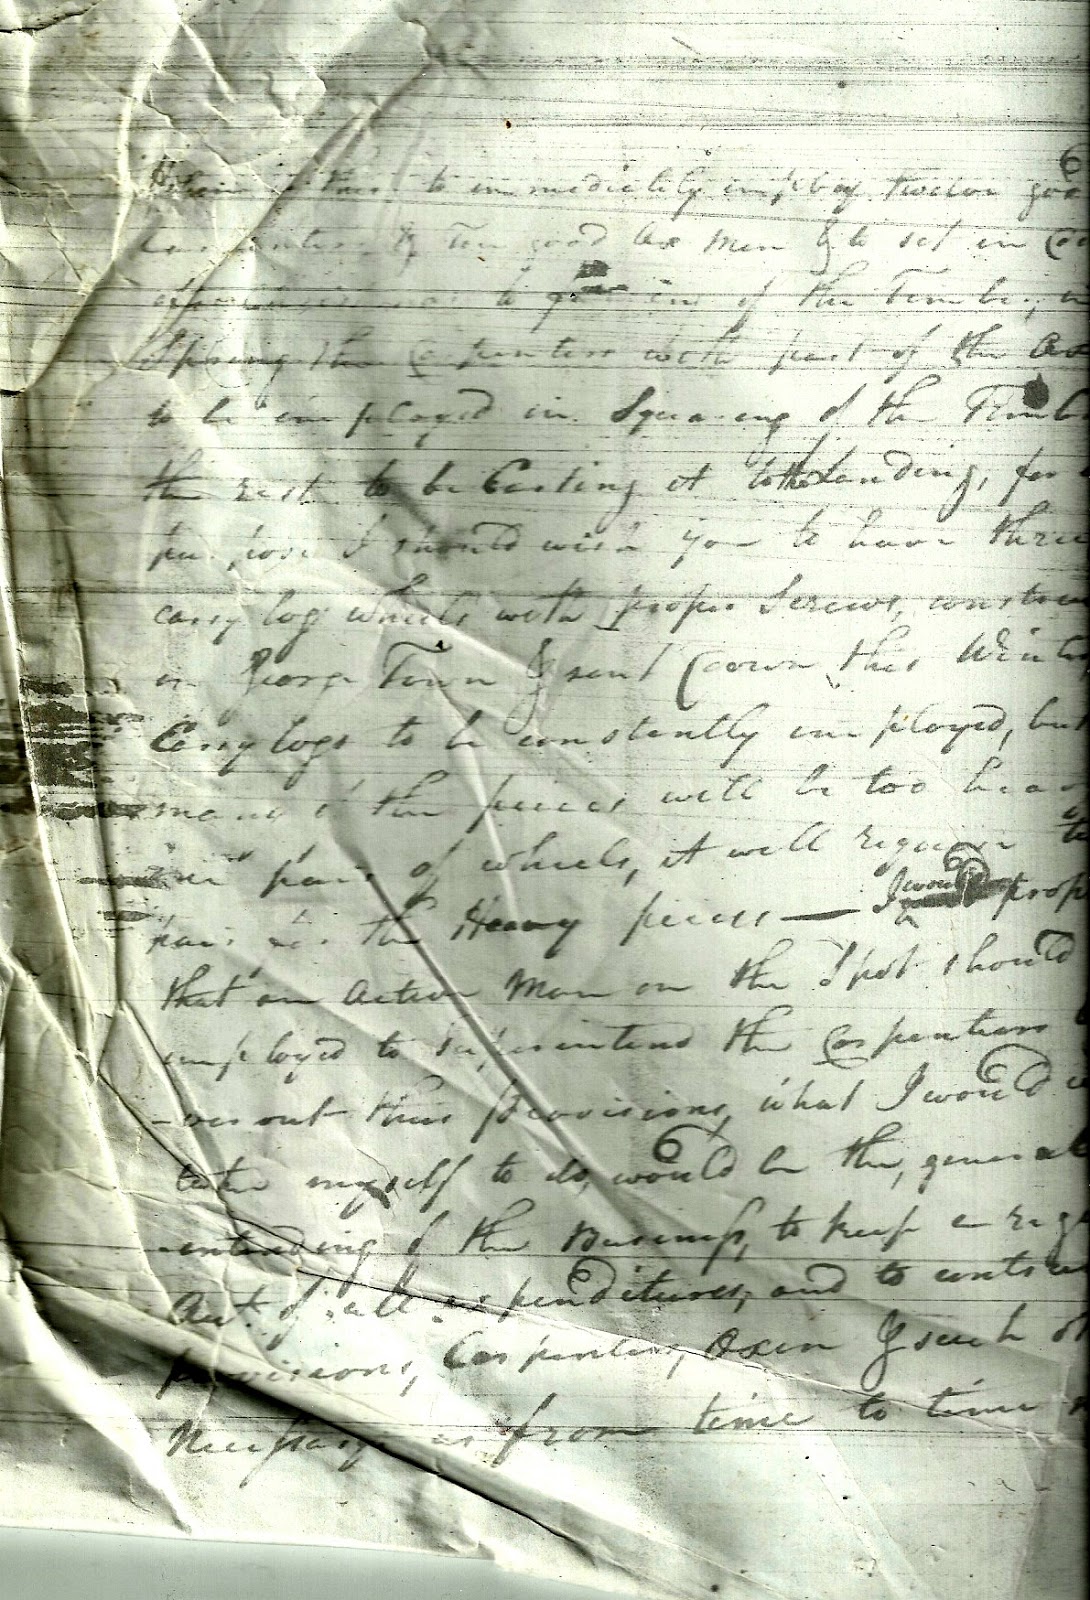 to immediately employ twelve goo
& Ten good Ax Men & to set in
of the Timber,
the Carpenters with part of the Ax
to be employed in Squaring of the Timb
the rest to be Carting it to the Landing, for
purpose I should wish you to have three
carry log wheels with proper Screws, constru
in George Town & sent down this Winter
Carry logs to be constantly employed, but
many of the pieces will be too hea
one pair of wheels, it will require
pair for the Heavy pieces — I would prop
that an Active Man on the Spot should
employed to Superintend the Carpenters
out their provisions, what I would
take myself to do, would be the, general
-intending of the Business, to keep a reg
Acct. of all expenditures, and to contra
provisions, Carpenters, Oxen & such ot
Necessarys as from time to time